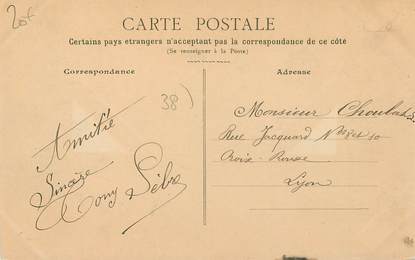 20x
CARTE POSTALE
Certains pays étrangers n'acceptant pas la correspondance de ce côté
(Se renseigner à la Poste)
Correspondance
Adresse
38)
Amitié
Sincère
Tony
Monsieur
Rue Jacquard
Croix-Rousse
Lyon